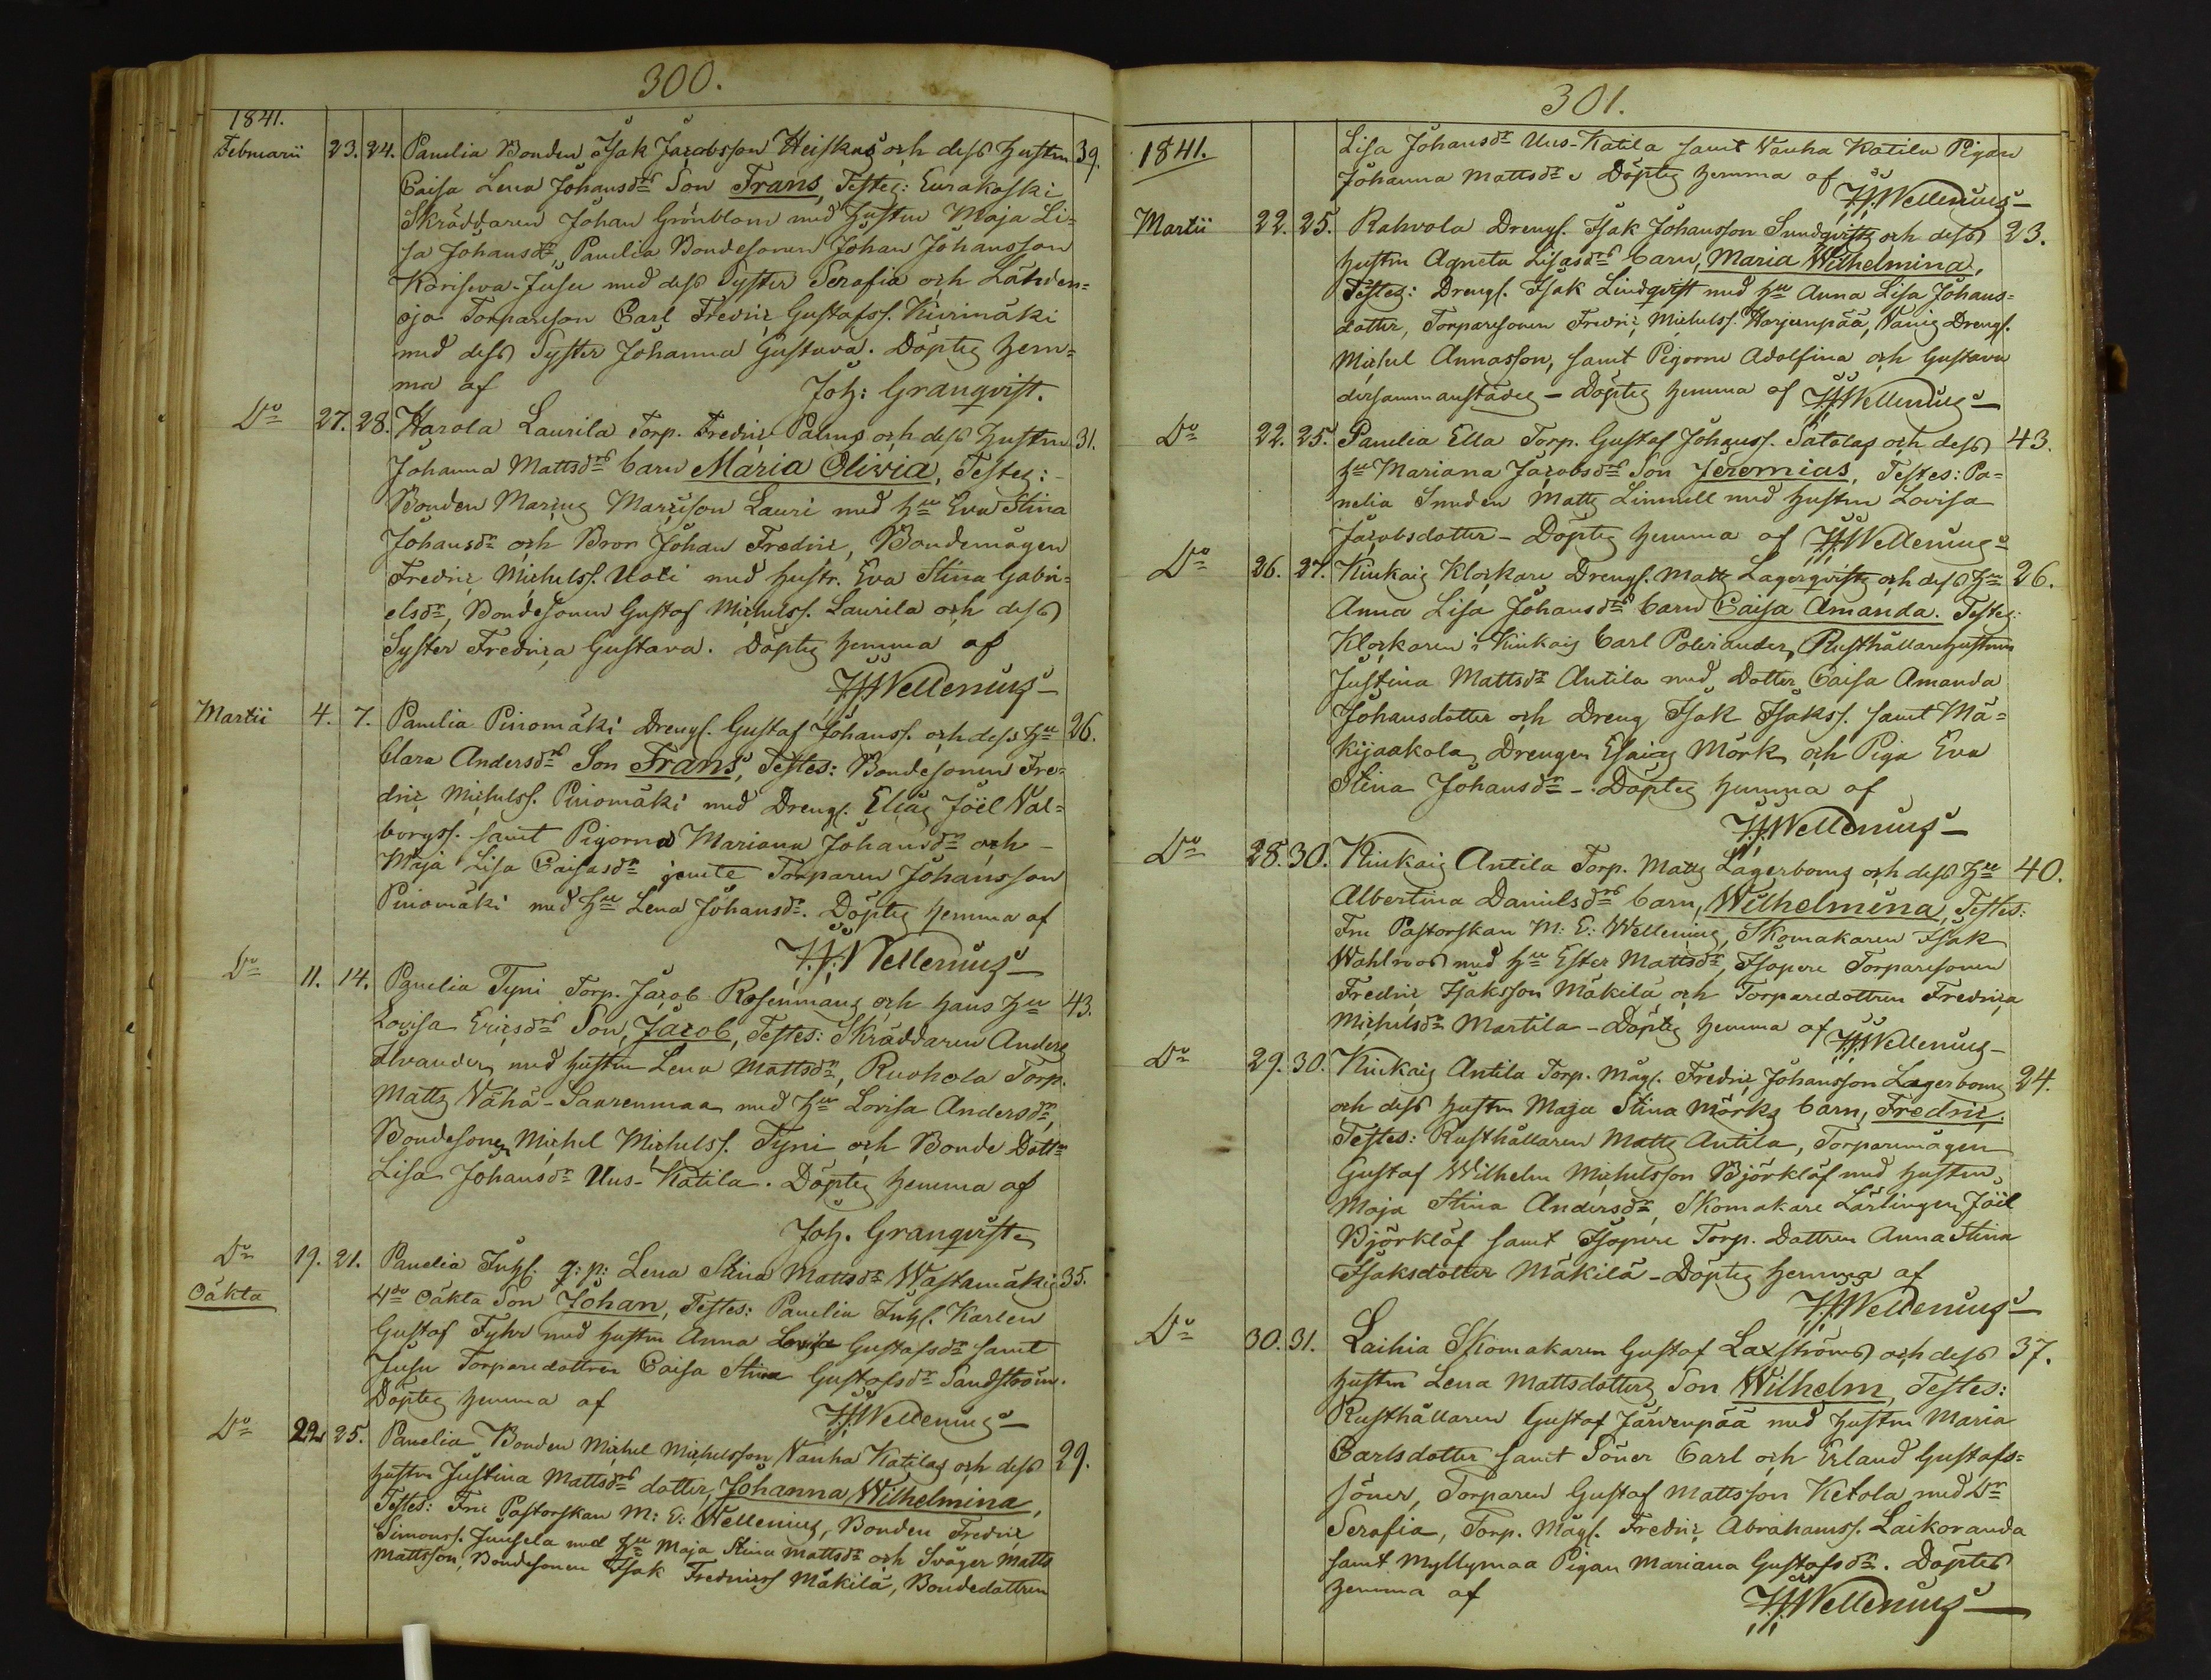 300.
1841.
Februarii 23. 24. Panelia Bonden Isak Jacobsson Heiskas och dess Hustru 39.
Caisa Lena Johansdrs Son Frans, Testes: Eurakoski
Skräddaren Johan Grönblom med Hustru Maja Li=
sa Johansdr, Panelia Bondesonen Johan Johansson
Koriseva-Jusu med dess Syster Serafia och Lähden=
oja Torpareson Carl Fredric Gustafss. Kivimäki
med dess Syster Johanna Gustava. Döptes hem=
ma af Joh: Granqvist.
Do 27. 28. Harola Laurila Torp. Fredric Palms och dess Hustru 31.
Johanna Mattsdrs barn Maria Olivia, Testes:
Bonden Marcus Marcison Lauri med Hu Eva Stina
Johansdr och Bror Johan Fredric, Bondemågen
Fredric Michelss. Uoti med Hustr. Eva Stina Gabri=
elsdr, Bondesonen Gustaf Michelss. Laurila och dess
Syster Fredrica Gustava. Döptes hemma af
Wellenius
Martii 4. 7. Panelia Pinomäki Drengs. Gustaf Johanss. och dess Hu 26.
Clara Andersdrs Son Frans, Testes: Bondesonen Fre=
dric Michelss. Pinomäki med Drengs. Elias Joël Val=
borgss. samt Pigorna Mariana Johansdr och
Maja Lisa Caisasdr jemte Torparen Johansson
Pinomäki med Hu Lena Johansdr. Döptes hemma af
Wellenius
Do 11. 14. Panelia Tyni Torp. Jacob Rosenmans och hans Hu 43.
Lovisa Ericsdrs Son, Jacob, Testes: Skräddaren Anders
Alvander med Hustru Lena Mattsdr, Ruohola Torp.
Matts Vähä-Saarenmaa med Hu Lovisa Andersdr,
Bondesonen Michel Michelss. Tyni och Bonde Dottr
Lisa Johansdr Uus-Katila. Döptes hemma af
Joh. Granqvist
Do 19. 21. Panelia Inhs. q: p: Lena Stina Mattsdr Wastamäkis 35.
Oäkta 4de Oäkta Son Johan, Testes: Panelia Inhs. Karlen
Gustaf Fyhr med Hustru Anna Lovisa Gustafsdr samt
Jusu Torparedottren Caisa Stina Gustafsdr Sandström.
Döptes hemma af Wellenius
Do 22. 25. Panelia Bonden Michel Michelsson Vanha Katilas och dess 29.
Hustru Justina Mattsdrs dotter, Johanna Wilhelmina,
Testes: Fru Pastorskan M: E: Wellenius, Bonden Fredric
Simonss. Junsela med Hu Maja Stina Mattsdr och Svåger Matts
Mattsson, Bondesonen Isak Fredricss Mäkilä, Bondedottren
301.
1841. Lisa Johansdr Uus-Katila samt Vanha Katila Pigan
Johanna Mattsdr. Döptes hemma af Wellenius
Martii 22. 25. Rahvola Drengs. Isak Johansson Sundqvists och dess 23.
Hustru Agneta Lisasdrs barn, Maria Wilhelmina,
Testes: Drengs. Isak Lindqvist med Hu Anna Lisa Johans=
dotter, Torparesonen Fredric Michelss. Harjunpää, Drengs.
Michel Annasson, samt Pigorne Adolfina och Gustava
dersammanstädes - Döptes hemma af Wellenius
Do 22. 25. Panelia Ella Torp. Gustaf Johanss. Satalas och dess 43.
Hu Mariana Jacobsdrs Son Jeremias, Testes: Pa=
nelia Smeden Matts Linnell med Hustru Lovisa
Jacobsdotter - Döptes hemma af Wellenius
Do 26. 27. Kiukais Klockare Drengs. Matts Lagerqvists och dess Hu 26.
Anna Lisa Johansdrs barn Caisa Amanda. Testes:
Klockaren i Kiukais Carl Polviander, Rusthållarehustrun
Justina Mattsdr Antila med Dotter Caisa Amanda
Johansdotter och Dreng Isak Isakss. samt Mä=
kijaakola Drengen Esaias Mörk och Piga Eva
Stina Johansdr - Döptes hemma af
Wellenius
Do 28. 30. Kiukais Antila Torp. Matts Lagerboms och dess Hu 40.
Albertina Danielsdrs barn, Wilhelmina, Testes:
Fru Pastorskan M: E: Wellenius, Skomakaren Isak
Wahlroos med Hu Ester Mattsdr, Isopere Torparesonen
Fredric Isaksson Mäkilä och Torparedottren Fredrica
Michelsdr Martila - Döptes hemma af Wellenius
Do 29. 30. Kiukais Antila Torp. Mågs. Fredric Johansson Lagerboms 24.
och dess Hustru Maja Stina Mörks barn, Fredric.
Testes: Rusthållaren Matts Antila, Torparemågen
Gustaf Wilhelm Michelsson Björklöf med Hustru
Maja Stina Andersdr, Skomakare Lärlingen Joël
Björklöf samt Isopere Torp. Dottren Anna Stina
Isaksdotter Mäkilä - Döptes hemma af
Wellenius
Do 30. 31. Laihia Skomakaren Gustaf Laxströms och dess 37.
Hustru Lena Mattsdotters Son Wilhelm, Testes:
Rusthållaren Gustaf Järvenpää med Hustru Maria
Carlsdotter samt Söner Carl och Erland Gustafs=
söner, Torparen Gustaf Mattsson Ketola med Dr
Serafia, Torp. Mågs. Fredric Abrahamss. Laikoranda
samt Myllymaa Pigan Mariana Gustafsdr. Döptes
hemma af Wellenius